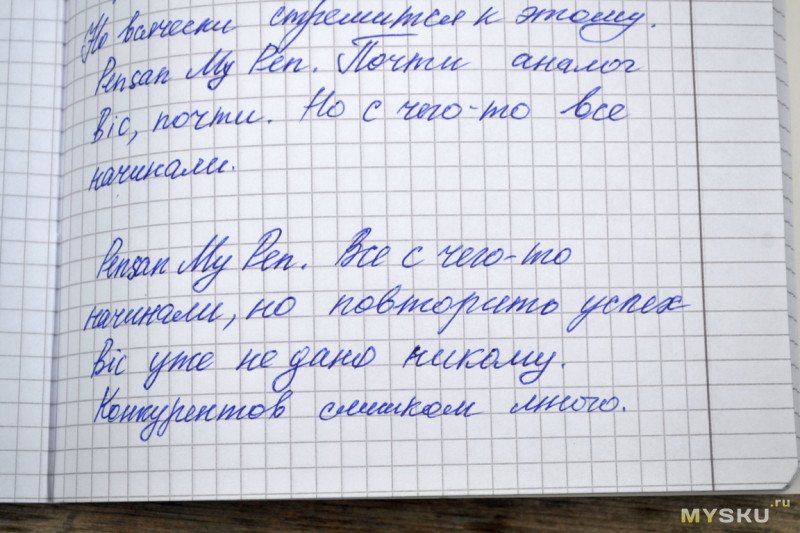 Но всячески стремится к этому.
Pensan My Pen. Почти аналог
Bic, почти. Но с чего-то все
начинали.
Pensan My Pen. Все с чего-то
начинали, но повторить успех
Bic уже не дано никому.
Конкурентов слишком много.
MYSKU.ru